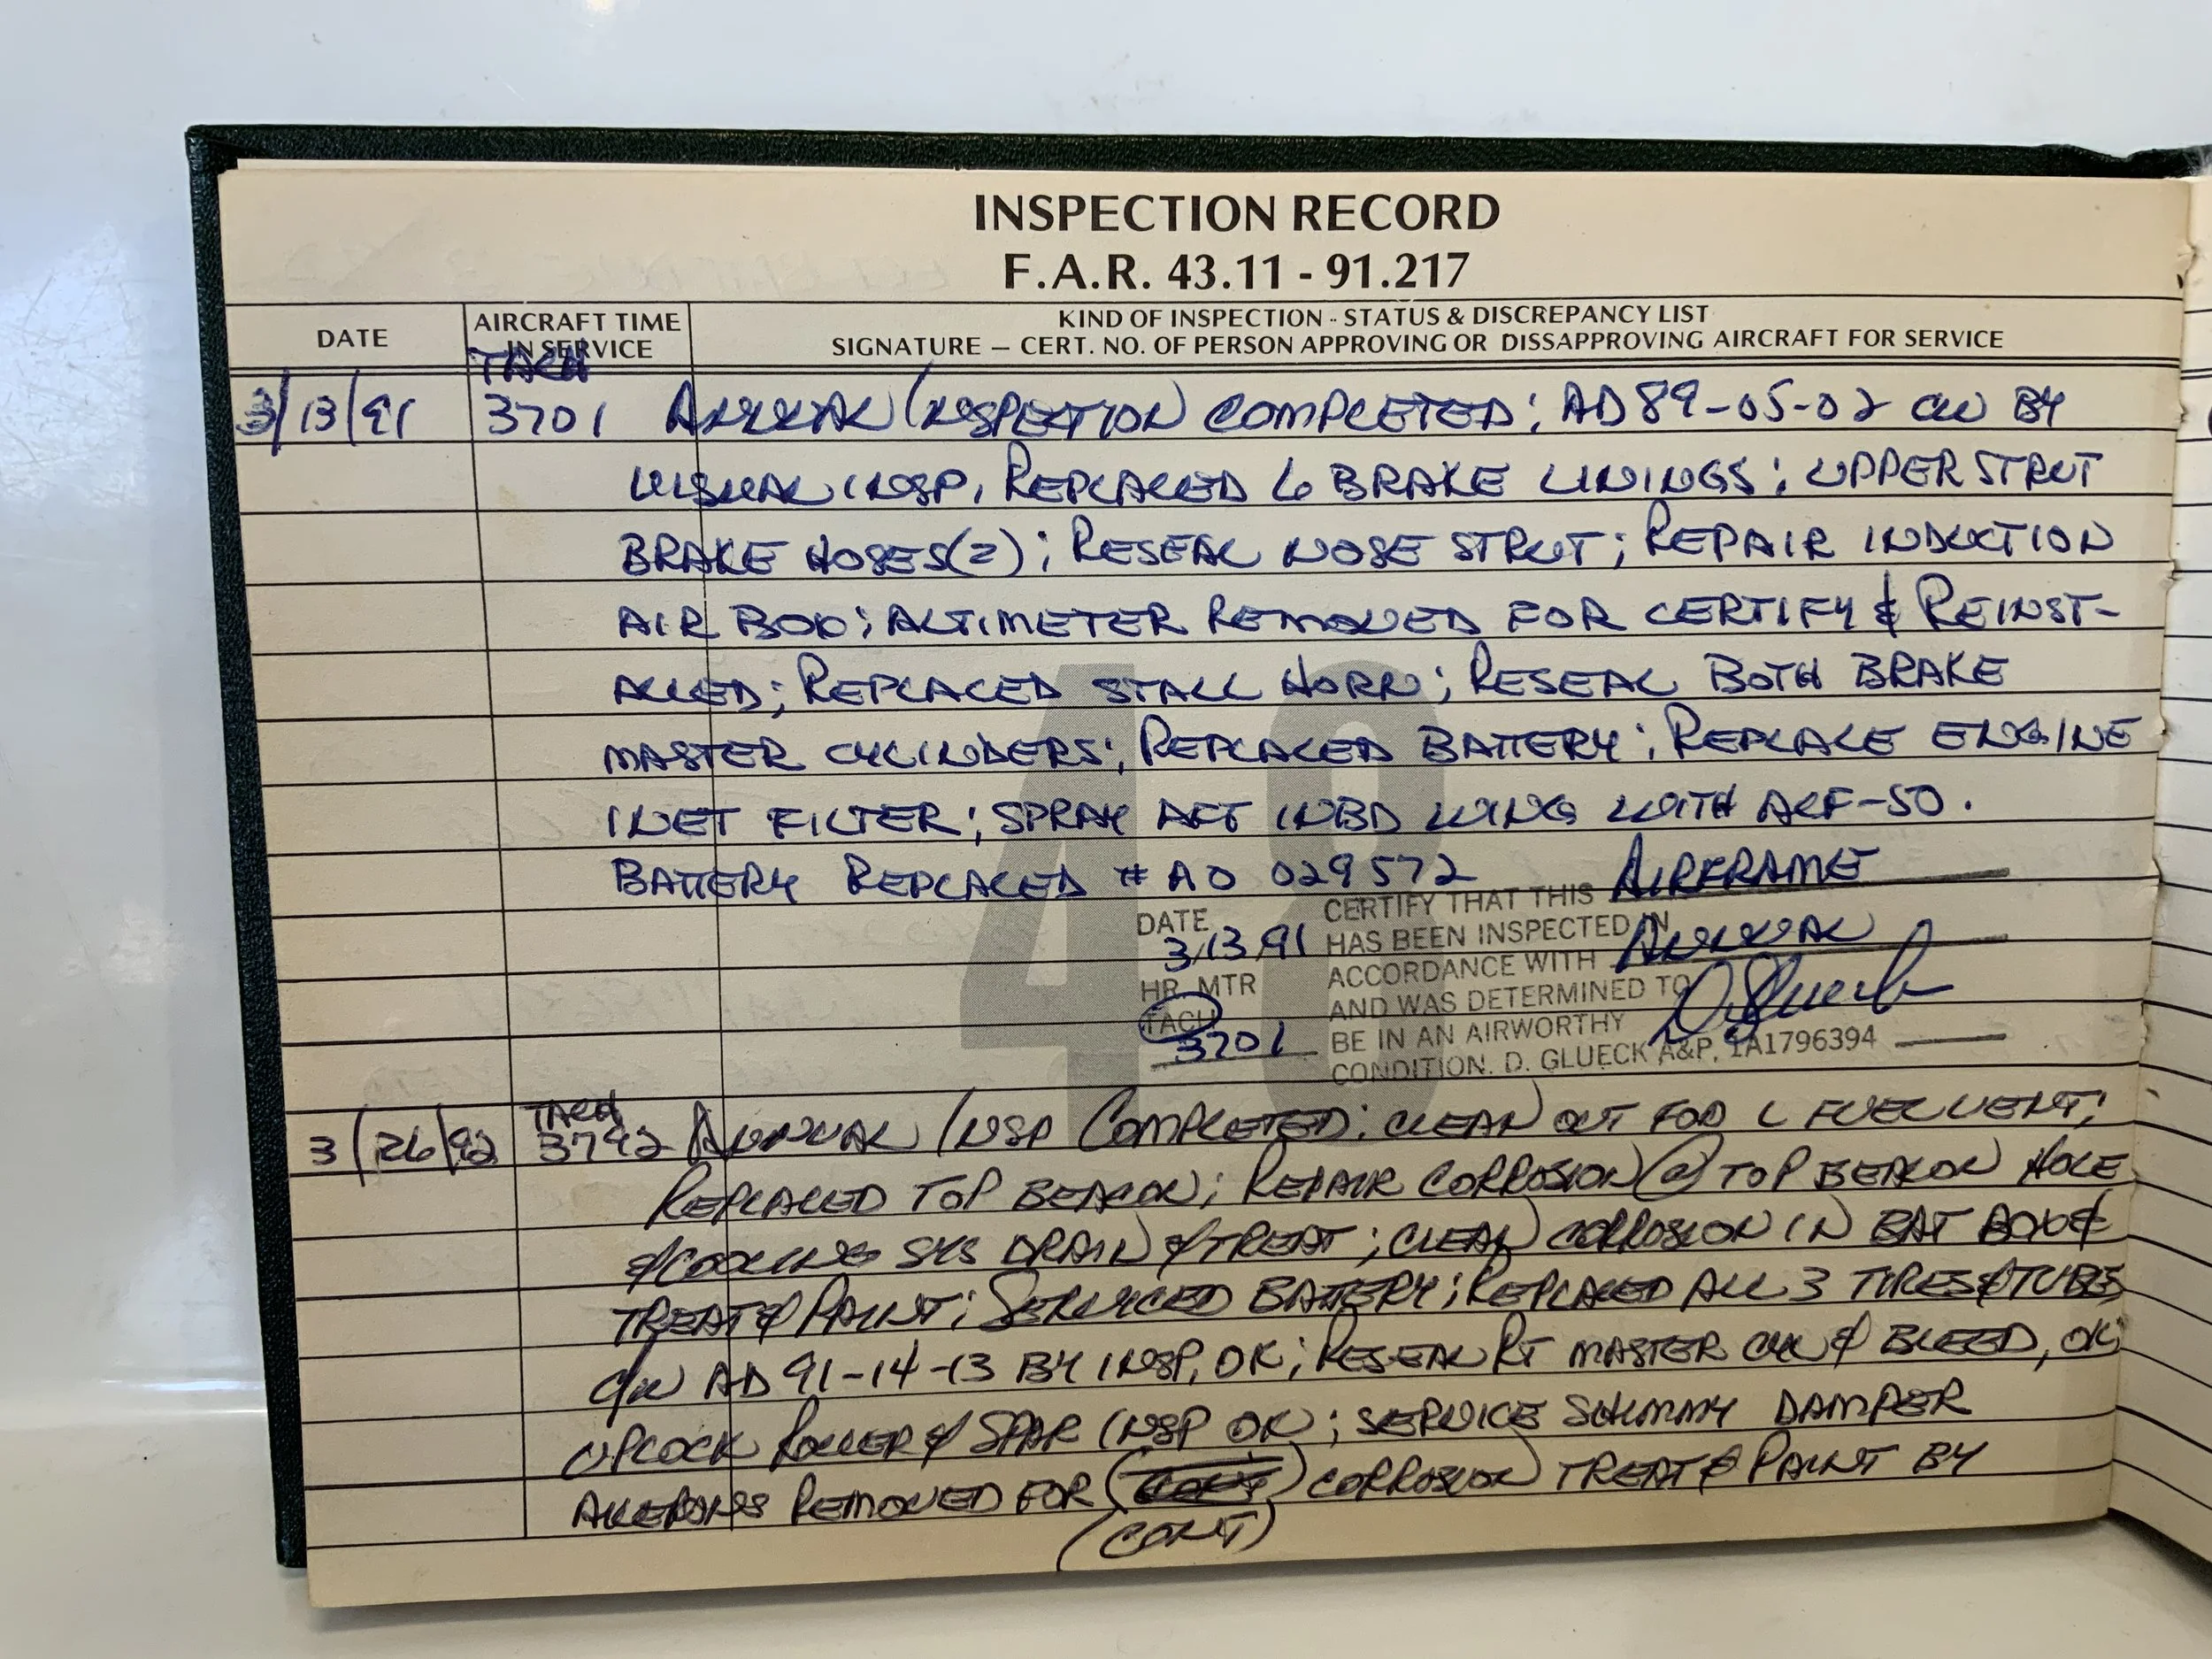 INSPECTION RECORD
F.A.R. 43.11 - 91.217
DATE
AIRCRAFT TIME
IN SERVICE
KIND OF INSPECTION - STATUS & DISCREPANCY LIST
SIGNATURE — CERT. NO. OF PERSON APPROVING OR DISSAPPROVING AIRCRAFT FOR SERVICE
TACH
3/13/91 3701 ANNUAL INSPECTION COMPLETED; AD 89-05-02 CW BY
VISUAL INSP, REPLACED 6 BRAKE LININGS; UPPER STRUT
BRAKE HOSES(2); RESEAL NOSE STRUT; REPAIR INDUCTION
AIR BOX; ALTIMETER REMOVED FOR CERTIFY & REINST-
ALLED; REPLACED STALL HORN; RESEAL BOTH BRAKE
MASTER CYLINDERS; REPLACED BATTERY; REPLACE ENGINE
INET FILTER; SPRAY AFT INBD WING WITH ACF-50.
BATTERY REPLACED # AO 029572
48
DATE
3/13/91
HR. MTR
TACH
3701
CERTIFY THAT THIS AIRFRAME
HAS BEEN INSPECTED IN
ACCORDANCE WITH ANNUAL
AND WAS DETERMINED TO
BE IN AN AIRWORTHY
CONDITION. D. GLUECK A&P, IA1796394
D. Glueck
TACH
3/26/92 3792 ANNUAL INSP COMPLETED: CLEAN OUT FOD L FUEL VENT;
REPLACED TOP BEACON; REPAIR CORROSION @ TOP BEACON HOLE
& COOLING SYS DRAIN & TREAT; CLEAN CORROSION IN BAT BOX &
TREAT & PAINT; SERVICED BATTERY; REPLACED ALL 3 TIRES & TUBES
C/W AD 91-14-13 BY INSP, OK; RESEAL RT MASTER CYL & BLEED, OK
UPLOCK ROLLER & SPAR INSP OK; SERVICE SHIMMY DAMPER
AILERONS REMOVED FOR CORROSION TREAT & PAINT BY
(CONT)